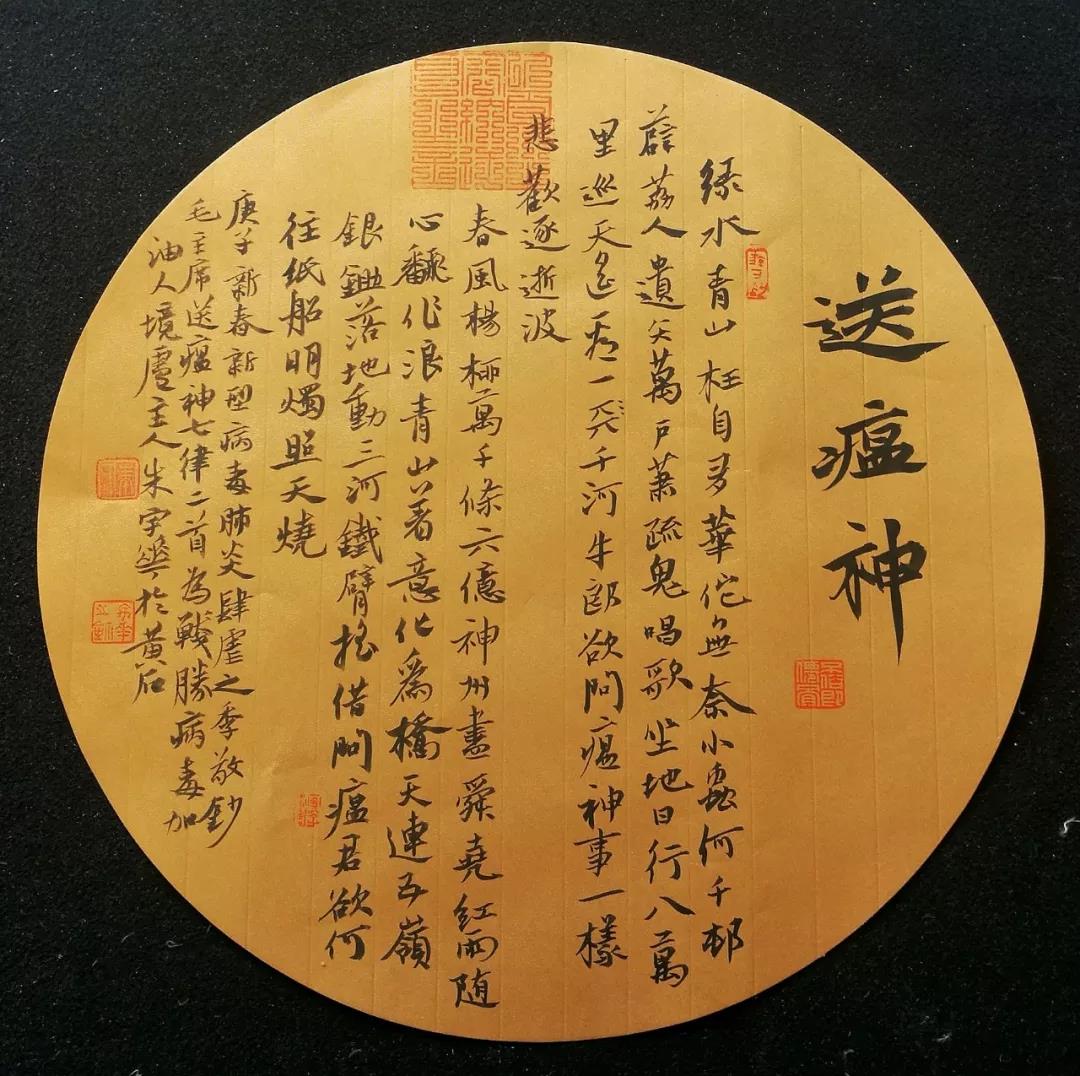 送瘟神
緑水青山枉自多華佗無奈小蟲何千邨
薜荔人遺矢萬戸萧疏鬼唱歌坐地日行八萬
里巡天遥看一千河牛郎欲问瘟神事一樣
悲歡逐逝波
春風楊柳萬千條六億神州盡舜堯紅雨随
心翻作浪青山着意化爲橋天連五嶺
銀鋤落地動三河鐵臂摇借问瘟君欲何
往纸船明燭照天燒
庚子新春新型病毒肺炎肆虐之季敬鈔
毛主席送瘟神七律二首為戰勝病毒加
油人境廬主人朱宇華於黄石